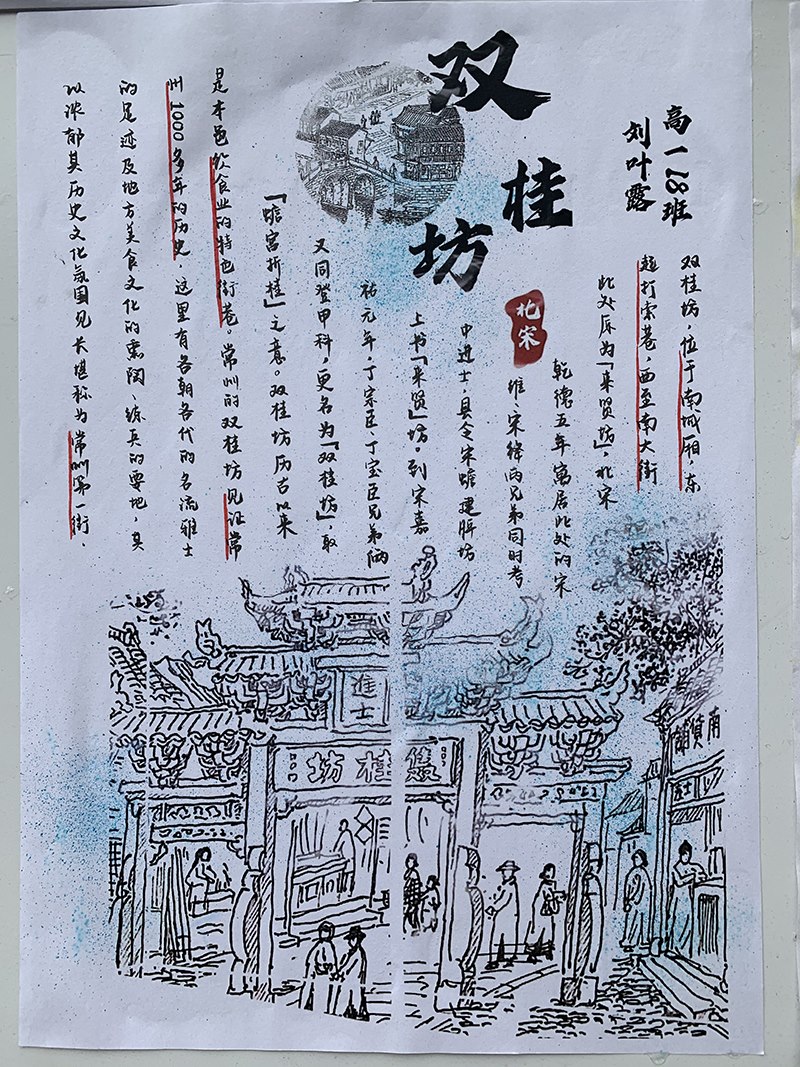 双桂坊
高一18班
刘叶露
双桂坊，位于南城厢，东
起打索巷，西至南大街
此处原为「来贤坊」，北宋
北宋
乾德五年寓居此处的宋
维、宋绛两兄弟同时考
中进士，县令宋蟾建牌坊
上书「来贤」坊。到宋嘉
祐元年，丁宗臣、丁宝臣兄弟俩
又同登甲科，更名为「双桂坊」取
「蟾宫折桂」之意。双桂坊历古以来
是本邑饮食业的特色街巷。常州的双桂坊见证常
州1000多年的历史，这里有各朝各代的名流雅士
的足迹及地方美食文化的 练兵的要地，其
以浓郁其历史文化氛围见长堪称为常州第一街、
進士
雙桂坊
南貨鋪